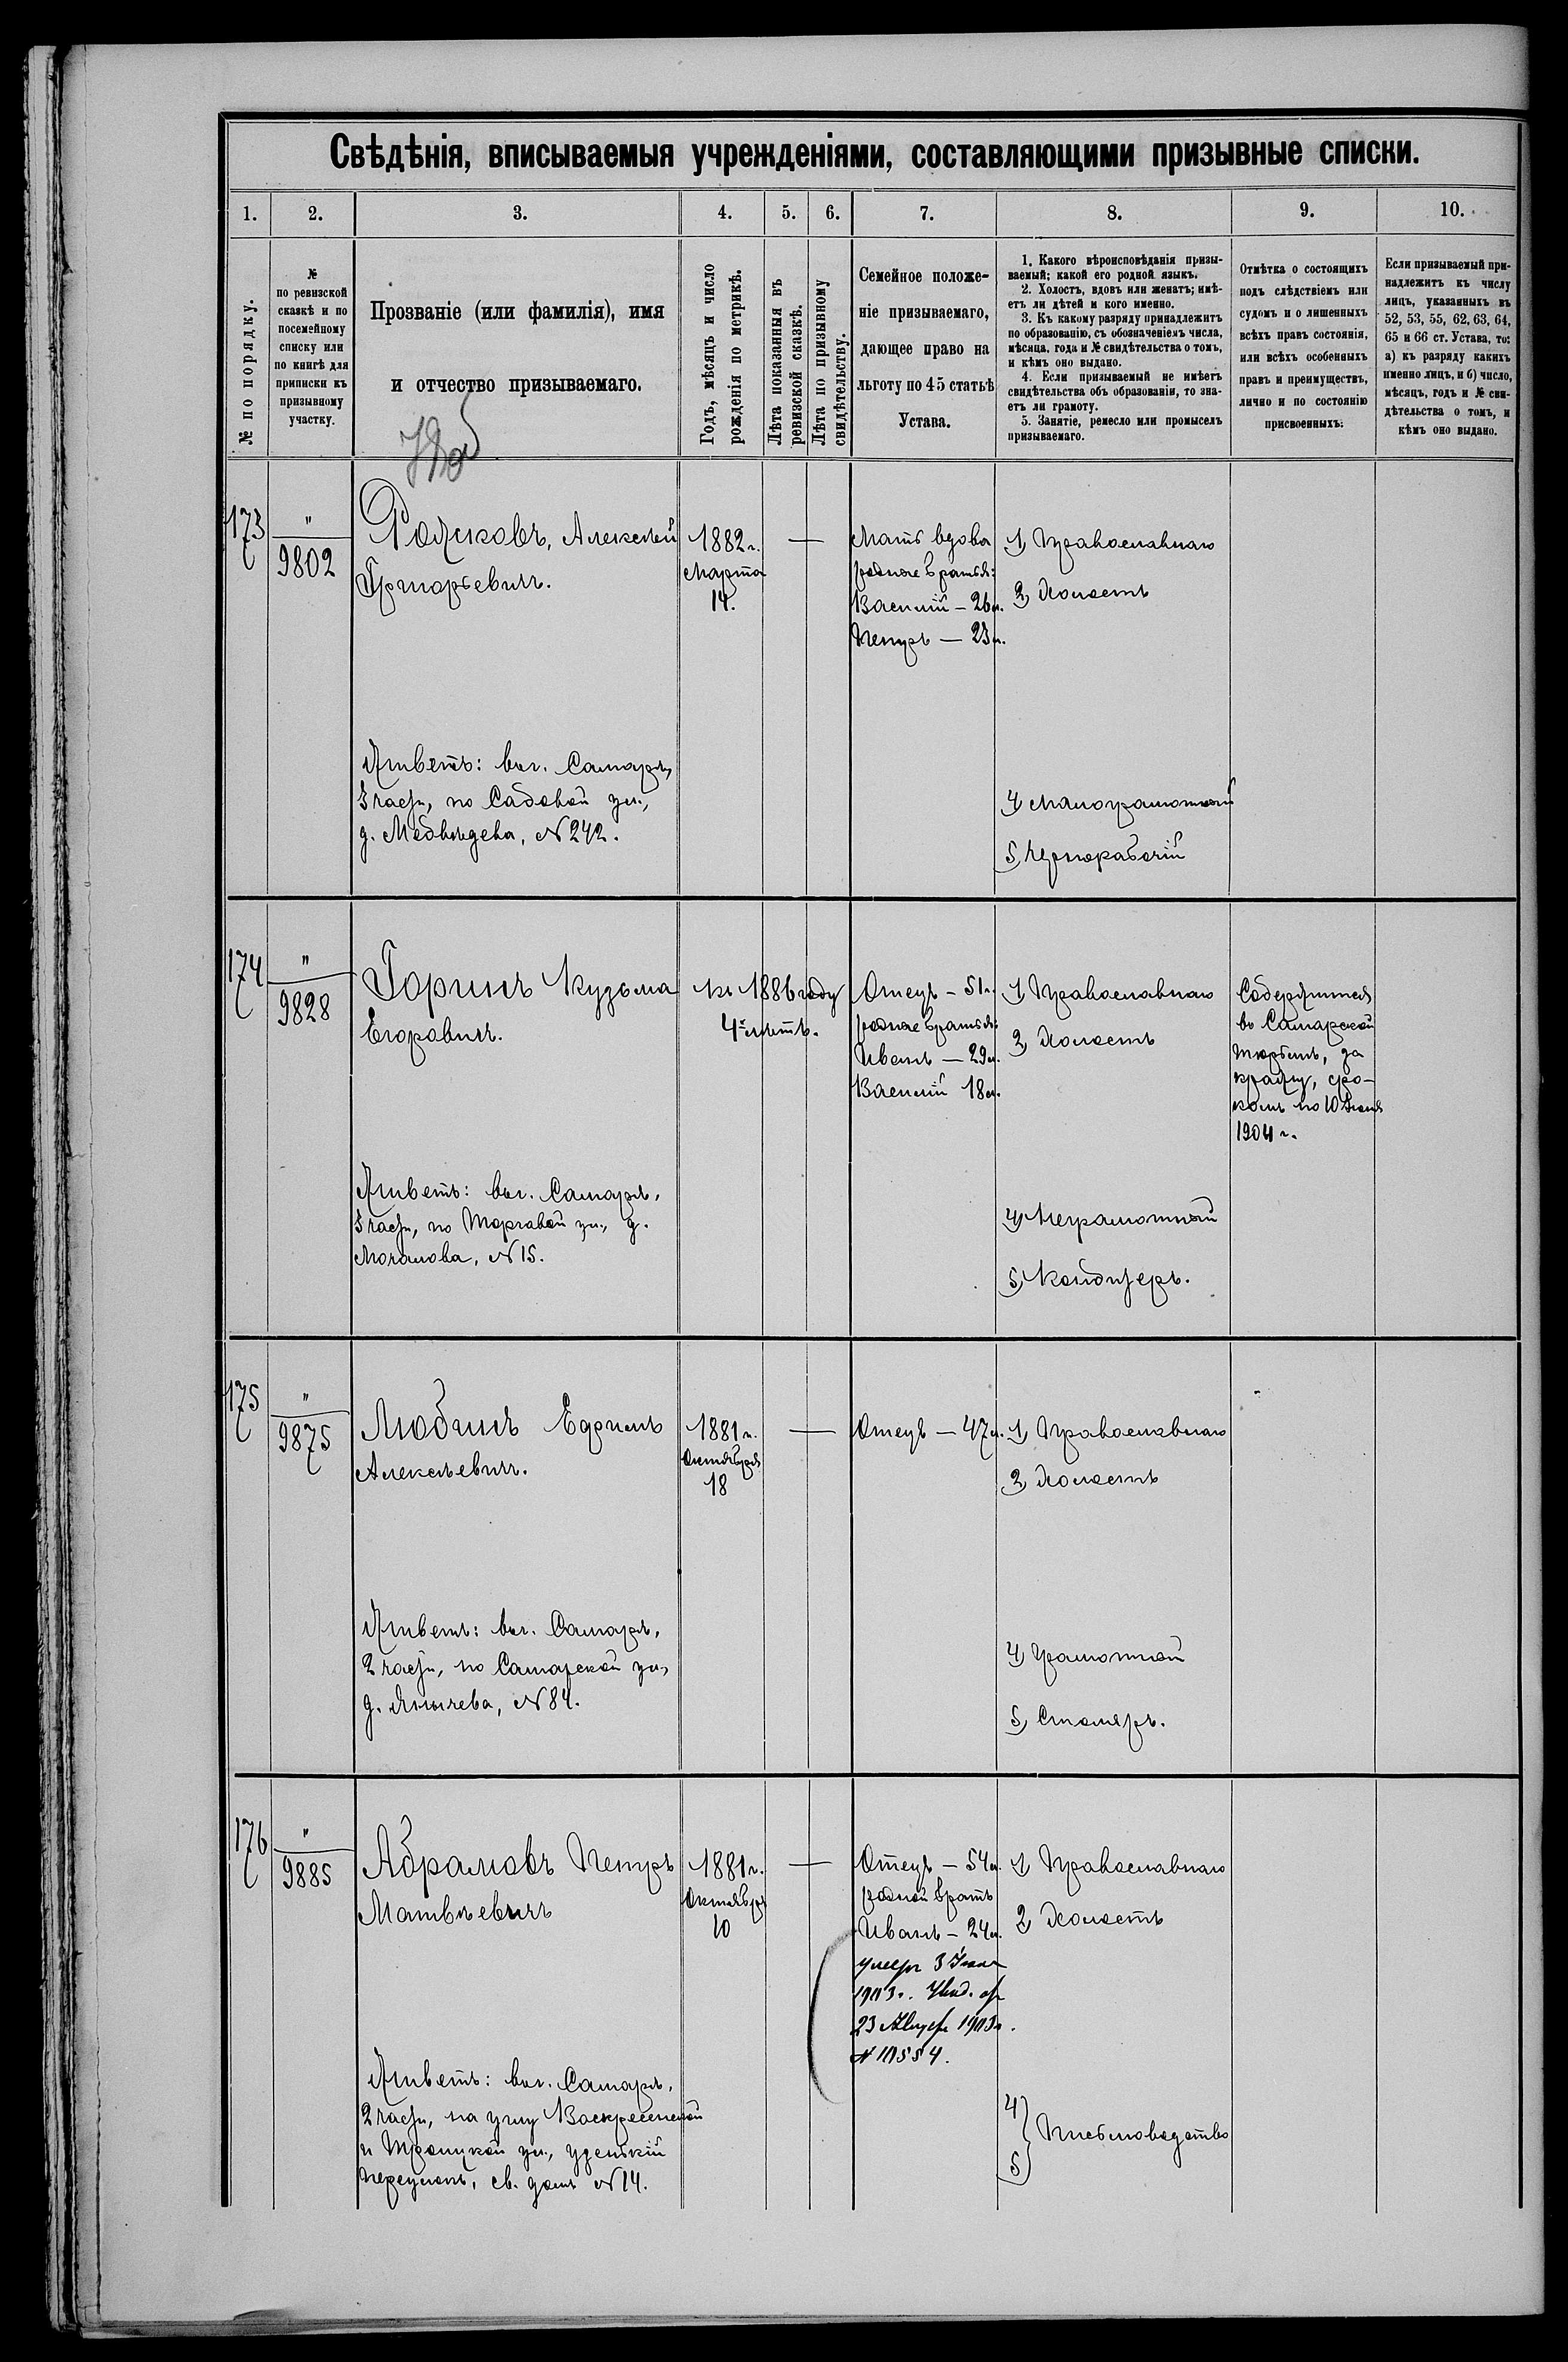 Свѣдѣнія, вписываемыя учрежденіями, составляющими призывные списки.
1. 2. 3. 4. 5. 6. 7. 8. 9. 10.
№ по порядку.
№
по ревизской
сказкѣ и по
посемейному
списку или
по книгѣ для
приписки къ
призывному
участку.
Прозваніе (или фамилія), имя
и отчество призываемаго.
Годъ, мѣсяцъ и число
рожденія по метрикѣ.
Лѣта показанныя въ
ревизской сказкѣ.
Лѣта по призывному
свидѣтельству.
Семейное положе-
ніе призываемаго,
дающее право на
льготу по 45 статьѣ
Устава.
1. Какого вѣроисповѣданія призы-
ваемый; какой его родной языкъ.
2. Холостъ, вдовъ или женатъ; имѣ-
етъ ли дѣтей и кого именно.
3. Къ какому разряду принадлежитъ
по образованію, съ обозначеніемъ числа,
мѣсяца, года и № свидѣтельства о томъ,
и кѣмъ оно выдано.
4. Если призываемый не имѣетъ
свидѣтельства объ образованіи, то зна-
етъ ли грамоту.
5. Занятіе, ремесло или промыселъ
призываемаго.
Отмѣтка о состоящихъ
подъ слѣдствіемъ или
судомъ и о лишенныхъ
всѣхъ правъ состоянія,
или всѣхъ особенныхъ
правъ и преимуществъ,
лично и по состоянію
присвоенныхъ.
Если призываемый при-
надлежитъ къ числу
лицъ, указанныхъ въ
52, 53, 55, 62, 63, 64,
65 и 66 ст. Устава, то:
а) къ разряду какихъ
именно лицъ, и б) число,
мѣсяцъ, годъ и № сви-
дѣтельства о томъ, и
кѣмъ оно выдано.
173
"
9802
Алексѣй
Григорьевичъ.
1882 г.
Марта
14.
—
Мать вдова
родные братья:
Василій — 26 л.
Петръ — 23 л.
1) Православнаго
2) Холостъ
Живетъ: въ г. Самарѣ,
3 части, по Садовой ул.,
д. Медвѣдева, № 242.
4) Малограмотный
5) Чернорабочій
174
"
9828
Горинъ Кузьма
Егоровичъ.
Къ 1886 году
4 лѣтъ.
Отецъ — 51 г.
родные братья:
Иванъ — 29 л.
Василій 18 л.
1) Православнаго
2) Холостъ
Содержится
въ Самарской
тюрьмѣ, за
кражу, сро-
комъ по 10 Іюня
1904 г.
Живетъ: въ г. Самарѣ,
3 части, по Торговой ул., д.
Мочалова, № 15.
4) Неграмотный
5) Кондитеръ.
175
"
9875
Любчинъ Ефимъ
Алексѣевичъ.
1881 г.
Октября
18
—
Отецъ — 47 л.
1) Православнаго
2) Холостъ
Живетъ: въ г. Самарѣ,
2 части, по Самарской ул.,
д. № 84.
4) Грамотный
5) Столяръ.
176
"
9885
Абрамовъ Петръ
Матвѣевичъ
1881 г.
Октября
10
—
Отецъ — 54 л.
родной братъ
Иванъ — 24 л.
умеръ 3
1903 г.
23 Августа 1903 г.
№ 10554.
1) Православнаго
2) Холостъ
Живетъ: въ г. Самарѣ,
2 части, на углу Воскресенской
и Троицкой ул., Узенькій
переулокъ, св. домъ № 14.
4)
5) Письмоводство